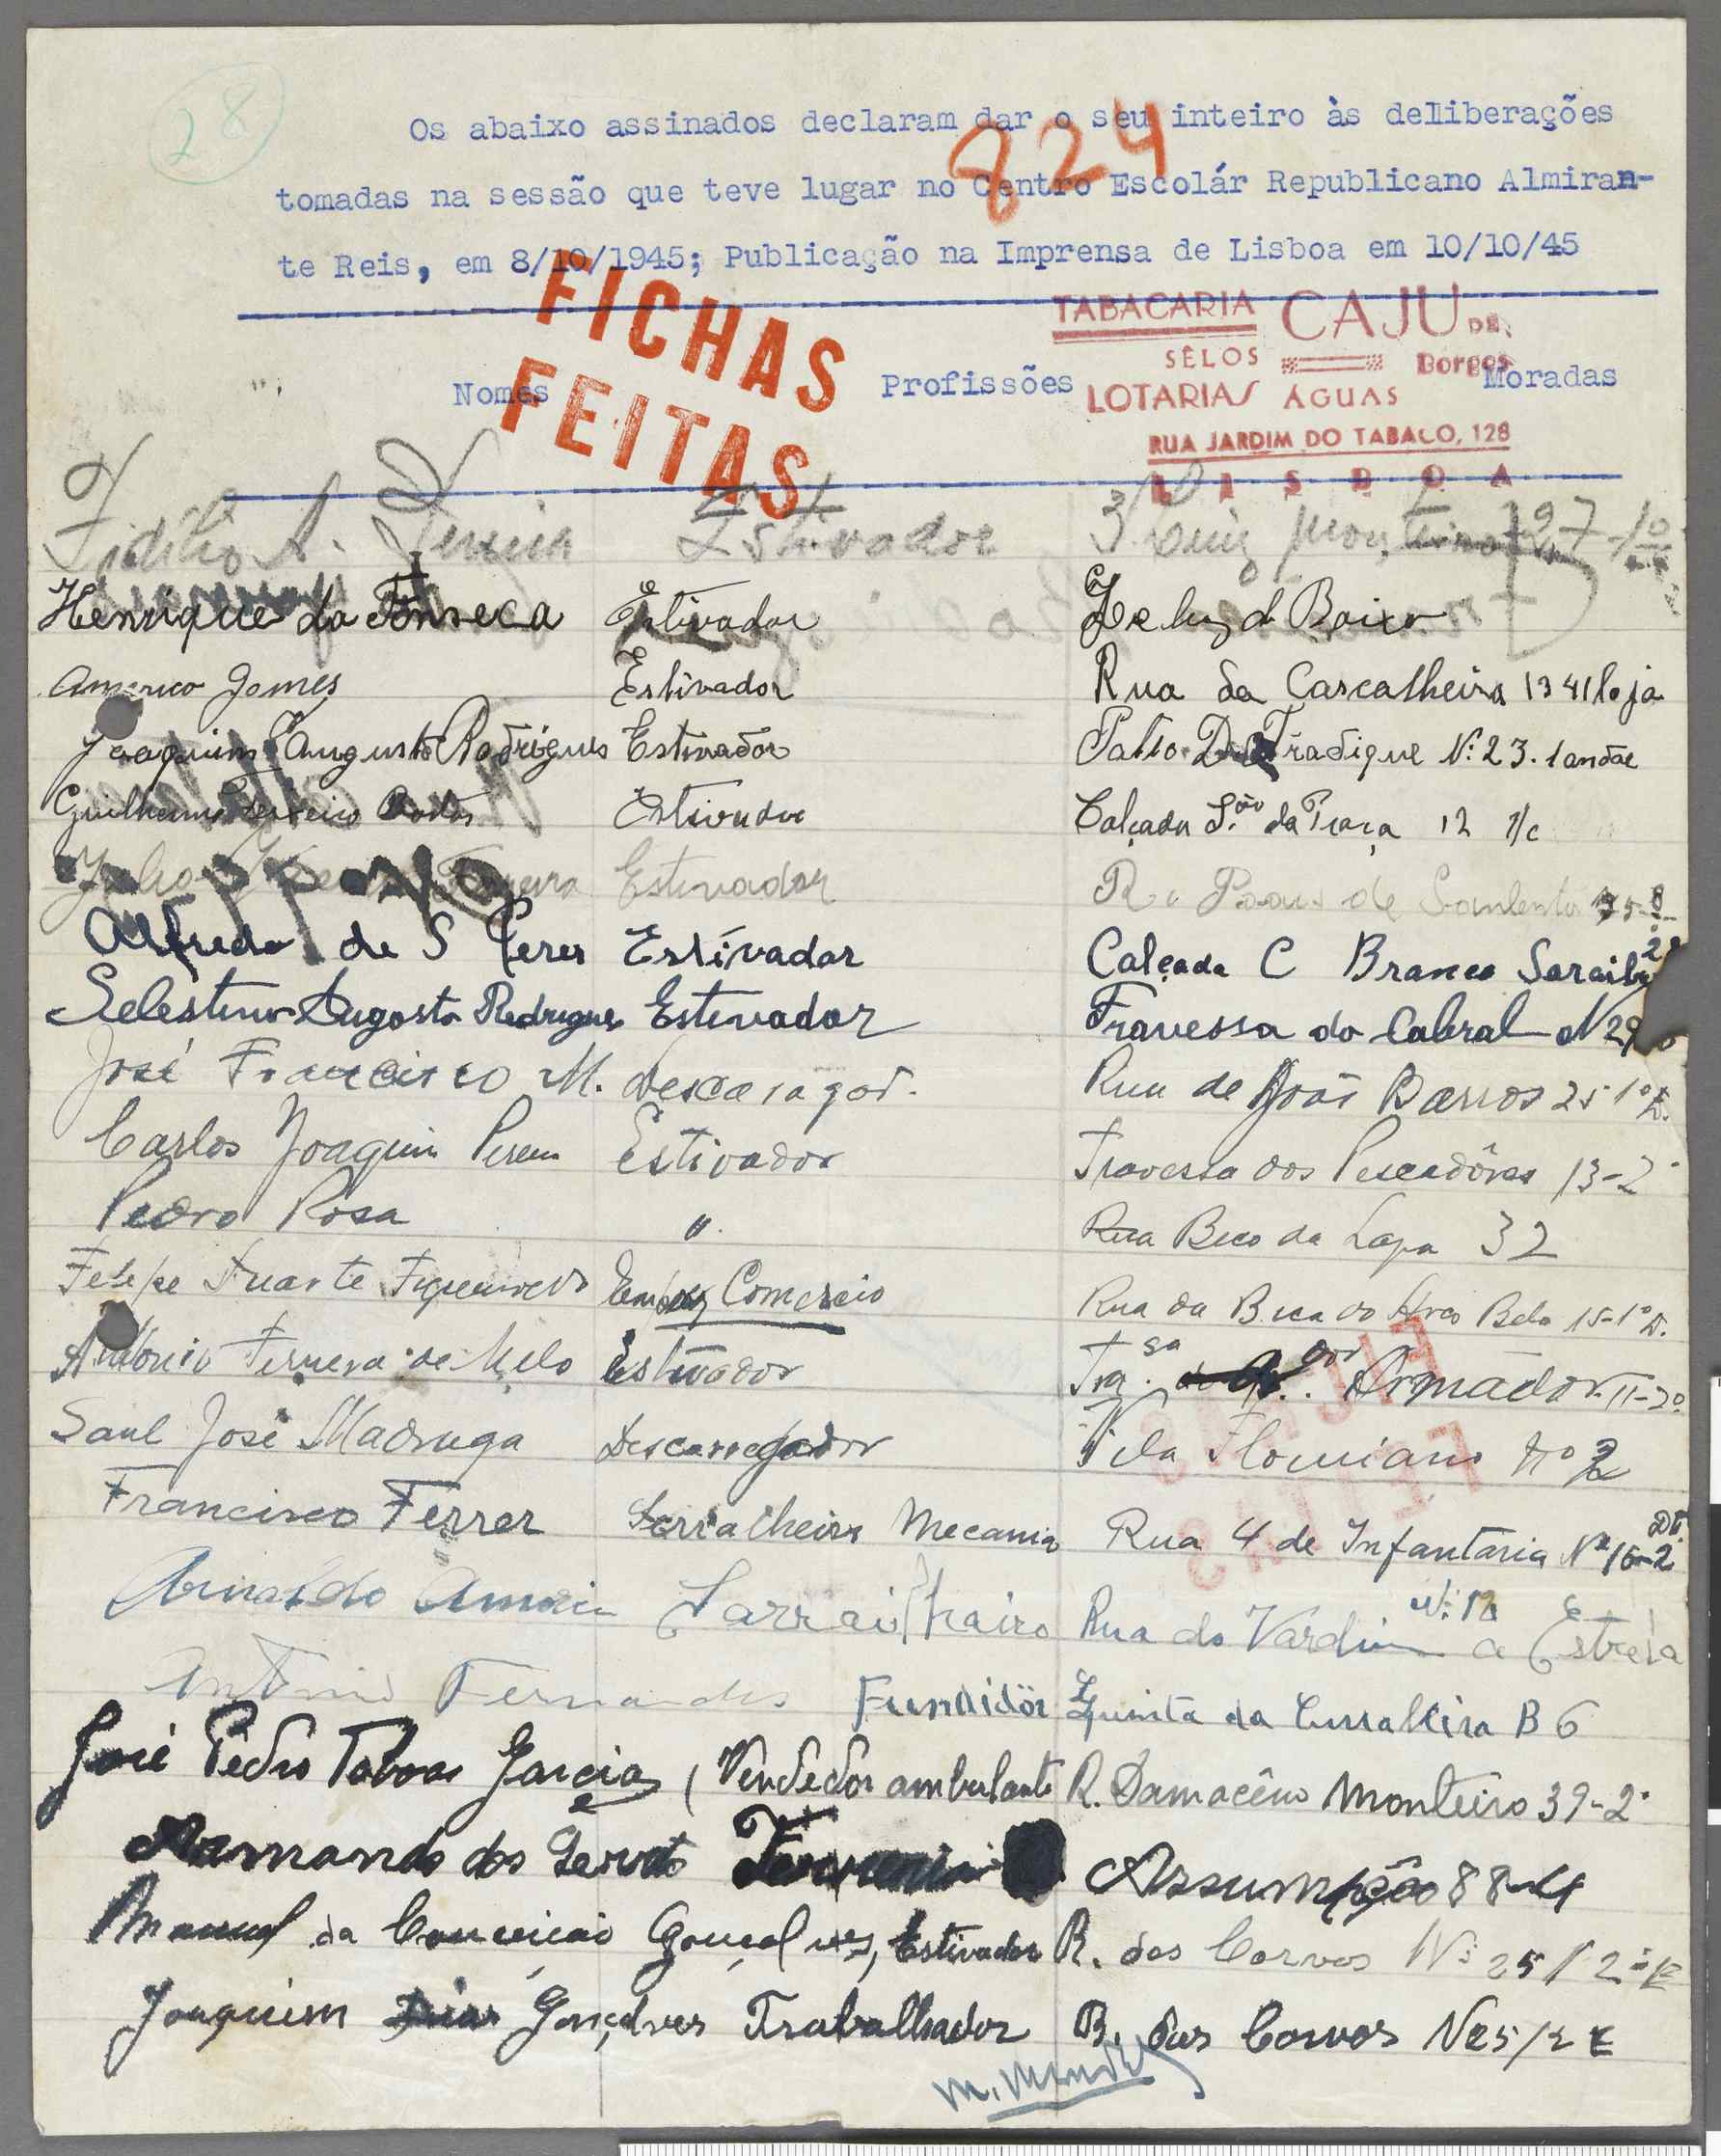 28
824
Os abaixo assinados declaram dar o seu inteiro às deliberações
tomadas na sessão que teve lugar no Centro Escolár Republicano Almiran-
te Reis, em 8/10/1945; Publicação na Imprensa de Lisboa em 10/10/45
FICHAS
FEITAS
TABACARIA CAJU DE
SÊLOS Borges
LOTARIAS ÁGUAS
RUA JARDIM DO TABACO, 128
LISBOA
Nomes Profissões Moradas
A. Estivador
Henrique da Fonseca Estivador de Baixo
Americo Gomes Estivador Rua da Cascalheira loja
Joaquim Augusto Rodrigues Estivador Patio D. Fradique Nº 23. 1 andar
Guilherme Estivador Calçada da Praça 12 r/c
Estivador R.
Alfredo de S Peres Estivador Calçada C Branco Saraiba
Selestino Augosto Rodrigues Estivador Travessa do Cabral N 29
José Francisco M. Rua de João Barros 25 1º D.
Carlos Joaquim Estivador Travessa dos Pescadôres 13-2º
Pedro Rosa " Rua Beco da Lapa 32
Felipe Duarte Figueiredo Comercio Rua da Bica do Belo 15-1º D.
António Ferreira de Melo Estivador Armador 11-2º
Saul José Madruga Descarregador Vila Floriano nº 2
Francisco Ferrer Serralheiro Mecanico Rua 4 de Infantaria Nº 16-2º Dt.
Arnaldo Rua do Jardim a Estrela
António Fernandes Fundidôr Quinta da Curraleira B 6
José Pedro Garcia Vendedor ambulante R. Damacêno Monteiro 39-2º
Armando dos Assumpção 88-4
Manuel da Conceição Gonçalves, Estivador R. dos Corvos Nº 25/2º E
Joaquim Dias Gonçalves Trabalhador R. dos Corvos N25/2 E
M. Mendes